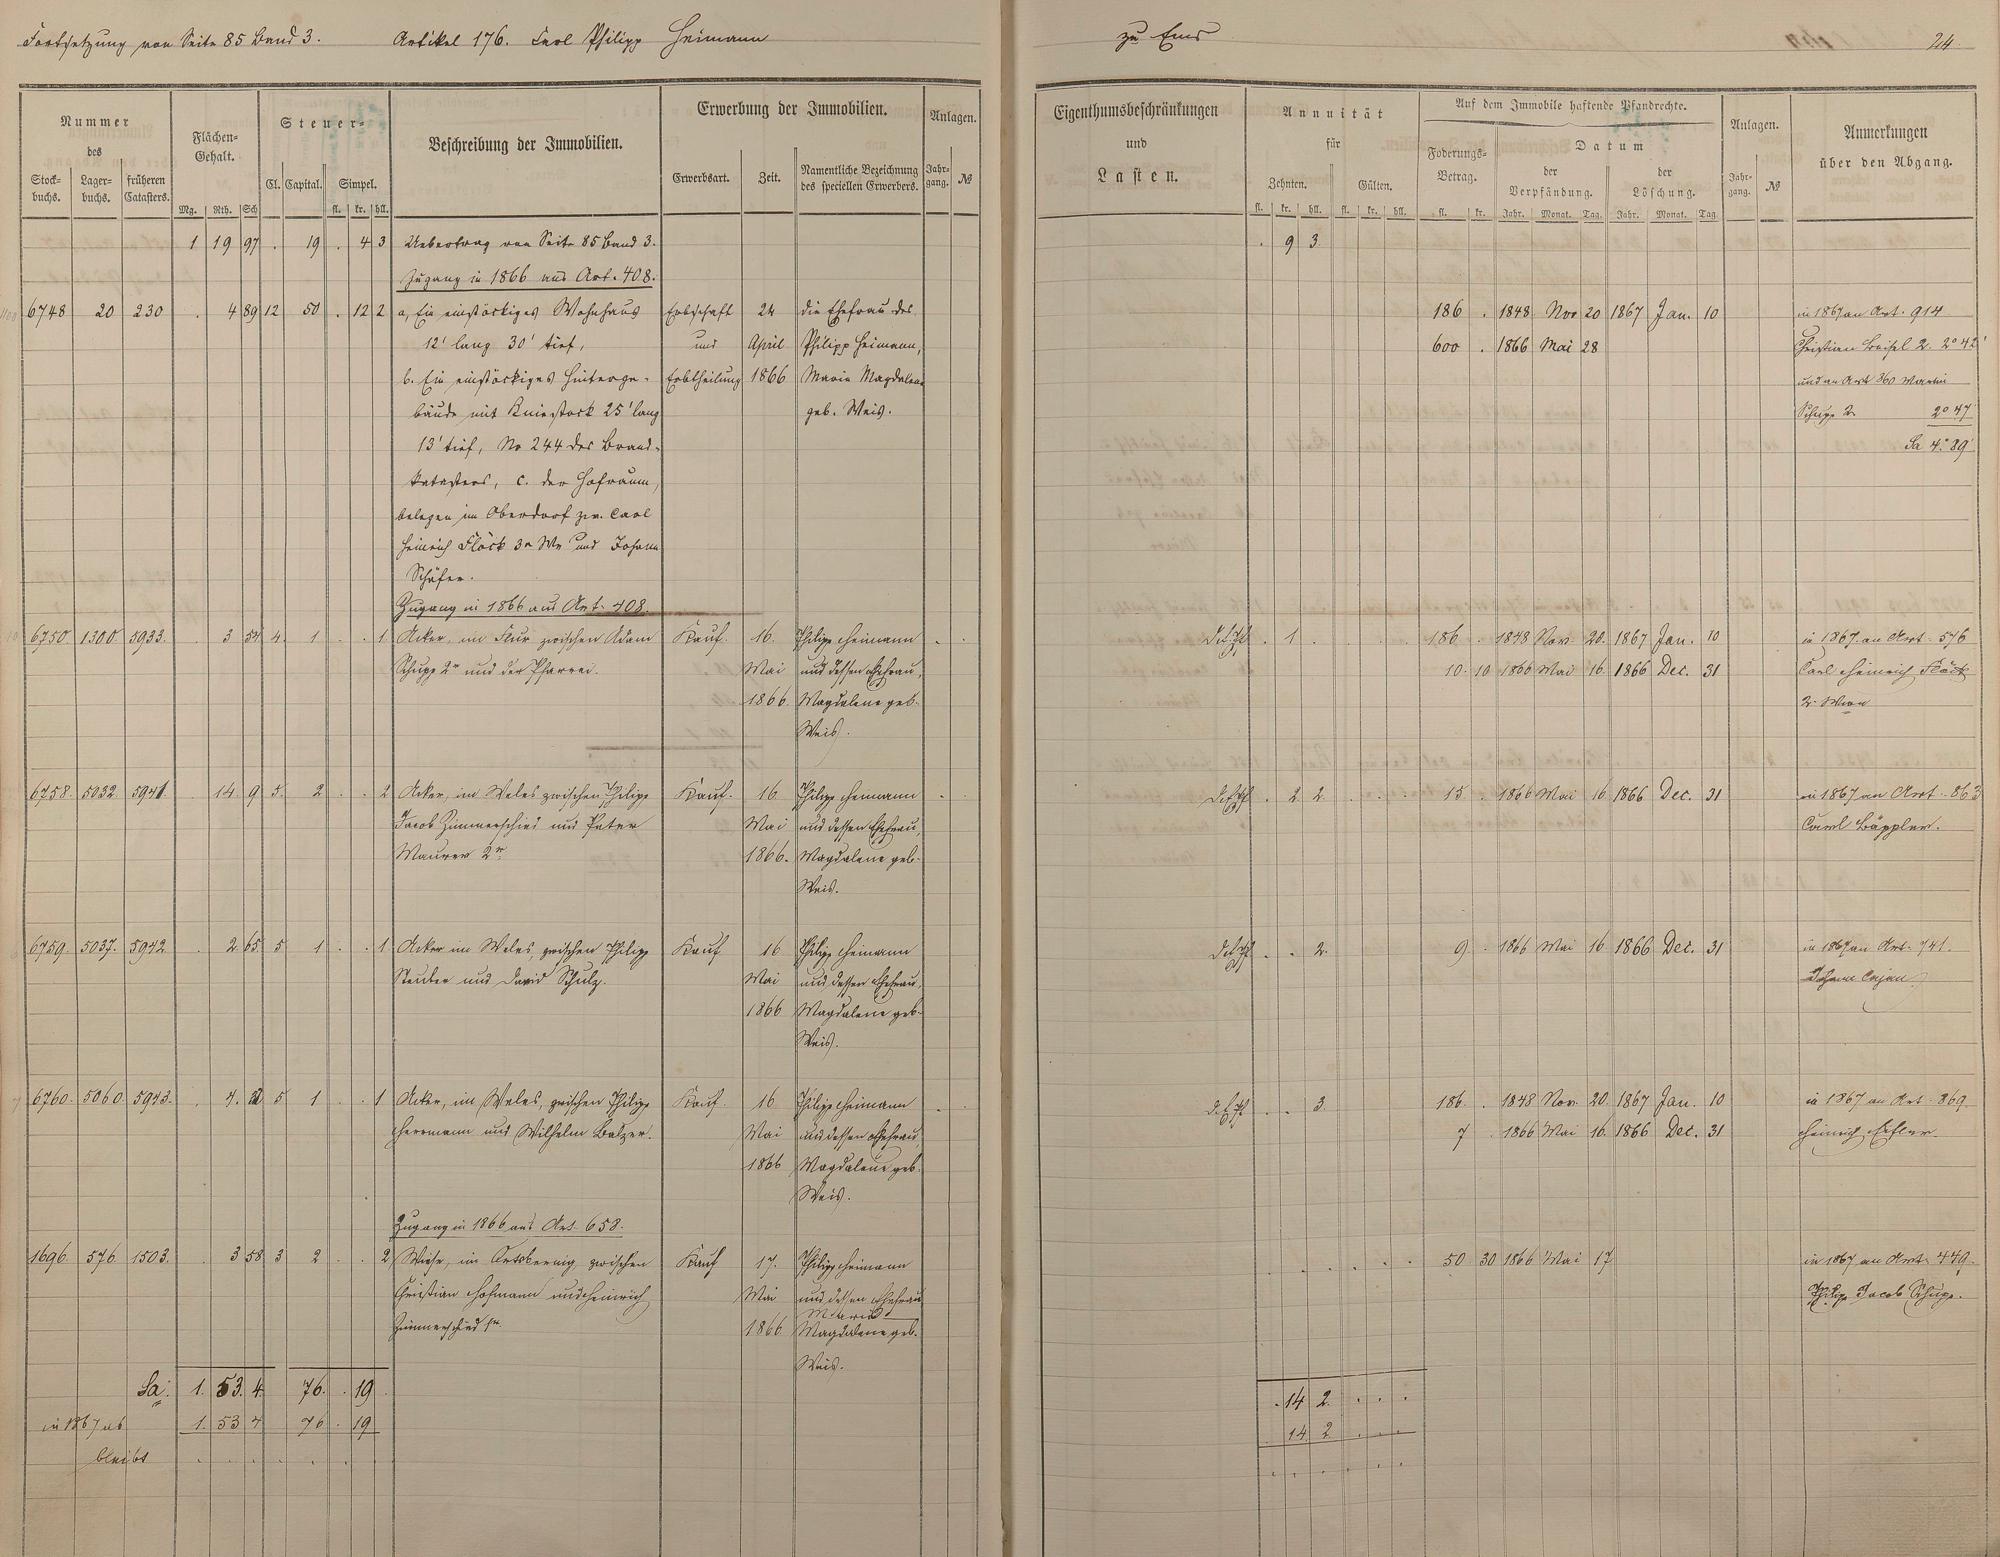 Fortsetzung von Seite 85 Band 3. Artikel 176. Carl Philipp Heimann zu Ems 24.
Nummer des
Stockbuchs. Lagerbuchs. früheren Catasters.
Flächen-Gehalt.
Mg. Rth. Sch
Steuer-
Cl. Capital. Simpel.
fl. kr. hll.
Beschreibung der Immobilien.
Erwerbung der Immobilien.
Erwerbsart. Zeit. Namentliche Bezeichnung des speciellen Erwerbers.
Anlagen.
Jahrgang. №
Eigenthumsbeschränkungen
und
Lasten.
Annuität
für
Zehnten. Gülten.
fl. kr. hll. fl. kr. hll.
Auf dem Immobile haftende Pfandrechte.
Foderungs-Betrag.
fl. kr.
Datum
der Verpfändung. der Löschung.
Jahr. Monat. Tag. Jahr. Monat. Tag.
Anlagen.
Jahrgang. №
Anmerkungen
über den Abgang.
1 19 97 . 19 . 4 3 Uebertrag von Seite 85 Band 3. . 9 3
Zugang in 1866 aus Art. 408.
6748 20 230 . 4 89 12 50 . 12 2 a, Ein einstöckiges Wohnhaus Erbschaft 24 die Ehefrau des 186 . 1848 Nov 20 1867 Jan. 10 in 1867 an Art. 914
12' lang 30' tief, und April Philipp Heimann, 600 . 1866 Mai 28 Christian 2. 2° 42'
b. Ein einstöckiges Hinterge- Erbtheilung 1866 Maria Magdalena und an Art 360 Martin
bäude mit Kniestock 25' lang geb. Weis. Schupp 2r 2° 47'
13' tief, No 244 des Brand- Sa 4.° 89'
katasters, c. der Hofraum,
belegen im Oberdorf zw. Carl
Heinrich Flöck 3r We und Johann
Schäfer.
Zugang in 1866 aus Art. 408.
6750 1300 5933. . 3 54 4. 1 . . 1. Acker, im Flur zwischen Adam Kauf. 16. Philipp Heimann . 1 . 186 . 1848 Nov. 20. 1867 Jan. 10 in 1867 an Art. 576
Schupp 2r und der Pfarrei. Mai und dessen Ehefrau, 10. 10 1866 Mai 16. 1866 Dec. 31 Carl Heinrich Flöck
1866. Magdalene geb. 2.
Weis.
6758. 5032. 5941. . 14 9 5. 2 . . 2 Acker, im Weles zwischen Philipp Kauf. 16 Philipp Heimann . 2 2. 15 . 1866 Mai 16 1866 Dec. 31 in 1867 an Art. 863
Jacob Zimmerschied und Peter Mai und dessen Ehefrau, Carl Bäppler.
Maurer 2r. 1866. Magdalene geb.
Weis.
6759. 5037. 5942. . 2 65. 5 1 . . 1. Acker im Weles, zwischen Philipp Kauf 16 Philipp Heimann . . 2. 9 . 1866 Mai 16. 1866 Dec. 31 in 1867 an Art. 741.
Steuber und David Schulz. Mai und dessen Ehefrau, Johann
1866 Magdalene geb.
Weis.
6760. 5060. 5943. . 4. 5 1 . . 1 Acker, im Weles, zwischen Philipp Kauf. 16 Philipp Heimann . . 3. 186. . 1848 Nov. 20. 1867 Jan. 10 in 1867 an Art. 869.
Herrmann und Wilhelm Balzer. Mai und dessen Ehefrau 7 . 1866 Mai 16. 1866 Dec. 31 Heinrich
1866 Magdalene geb.
Weis.
Zugang in 1866 aus Art. 658.
1696. 576. 1503. . 3 58 3 2 . . 2 Wiese, im zwischen Kauf 17. Philipp Heimann . . . . . . 50 30 1866 Mai 17 in 1867 an Art. 449.
Christian Hofmann und Heinrich Mai und dessen Ehefrau Philipp Jacob Schupp.
Maria
Zimmerschied 1r. 1866 Magdalene geb.
Weis.
Sa: 1. 53. 4. 76. . 19 . 14 2. . . .
in 1867 ab 1. 53 4 76 . 19 14. 2 . . .
bleibt . . . . . . . . . . . .